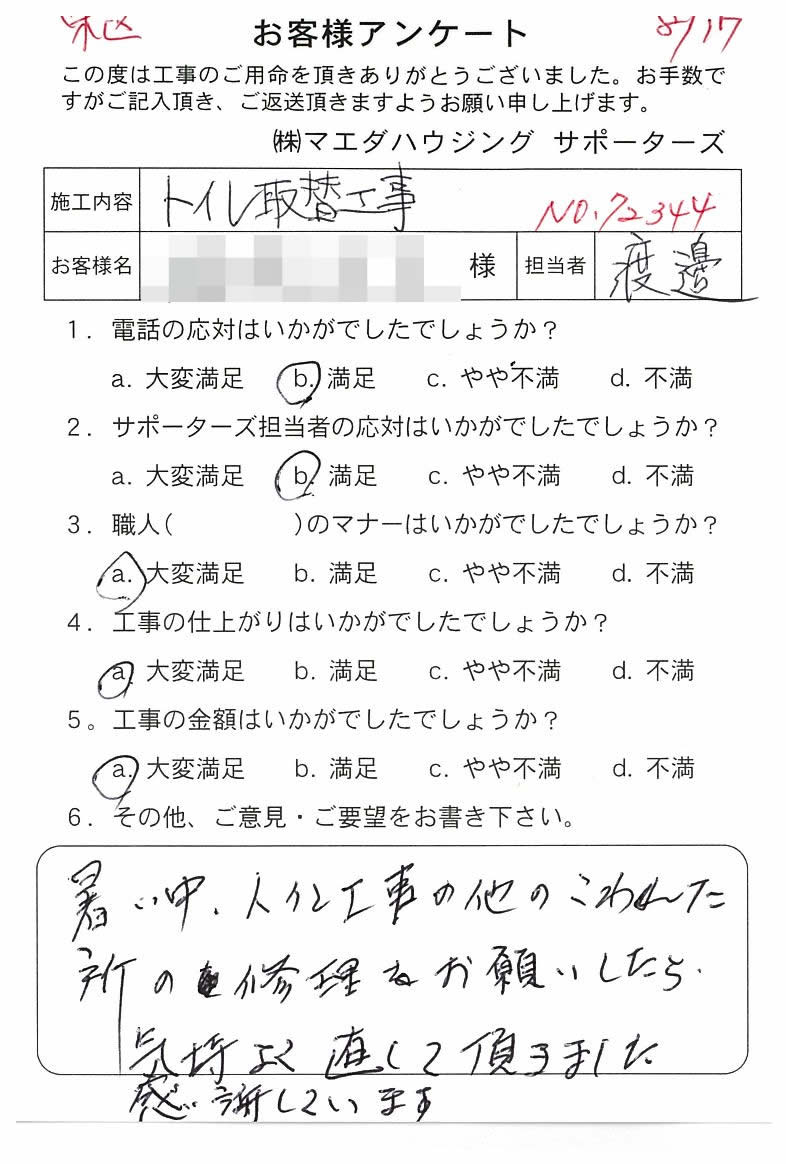 お客様アンケート 8/17
この度は工事のご用命を頂きありがとうございました。お手数で
すがご記入頂き、ご返送頂きますようお願い申し上げます。
㈱マエダハウジング サポーターズ
施工内容 トイレ取替工事 NO.72344
お客様名 様 担当者 渡邊
1. 電話の応対はいかがでしたでしょうか？
a. 大変満足 b. 満足 c. やや不満 d. 不満
2. サポーターズ担当者の応対はいかがでしたでしょうか？
a. 大変満足 b. 満足 c. やや不満 d. 不満
3. 職人( )のマナーはいかがでしたでしょうか？
a. 大変満足 b. 満足 c. やや不満 d. 不満
4. 工事の仕上がりはいかがでしたでしょうか？
a. 大変満足 b. 満足 c. やや不満 d. 不満
5。工事の金額はいかがでしたでしょうか？
a. 大変満足 b. 満足 c. やや不満 d. 不満
6. その他、ご意見・ご要望をお書き下さい。
暑い中、トイレ工事の他のこわれた
所の修理をお願いしたら、
気持よく直して頂きました
感謝しています